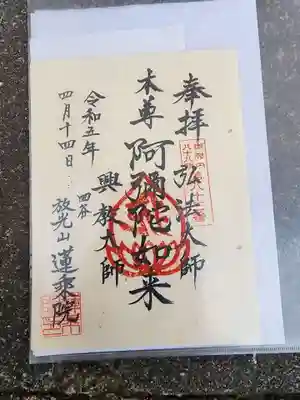 奉拝
弘法大師
本尊 阿彌陀如来
興教大師
令和五年
四月十四日
四谷
放光山 蓮乗院